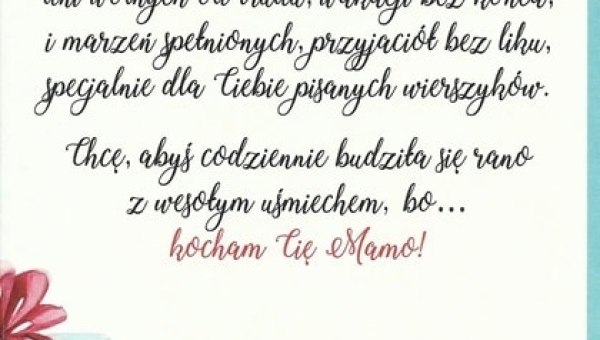 i marzeń spełnionych, przyjaciół bez liku,
specjalnie dla Ciebie pisanych wierszyków.
Chcę, abyś codziennie budziła się rano
z wesołym uśmiechem, bo...
kocham Cię Mamo!